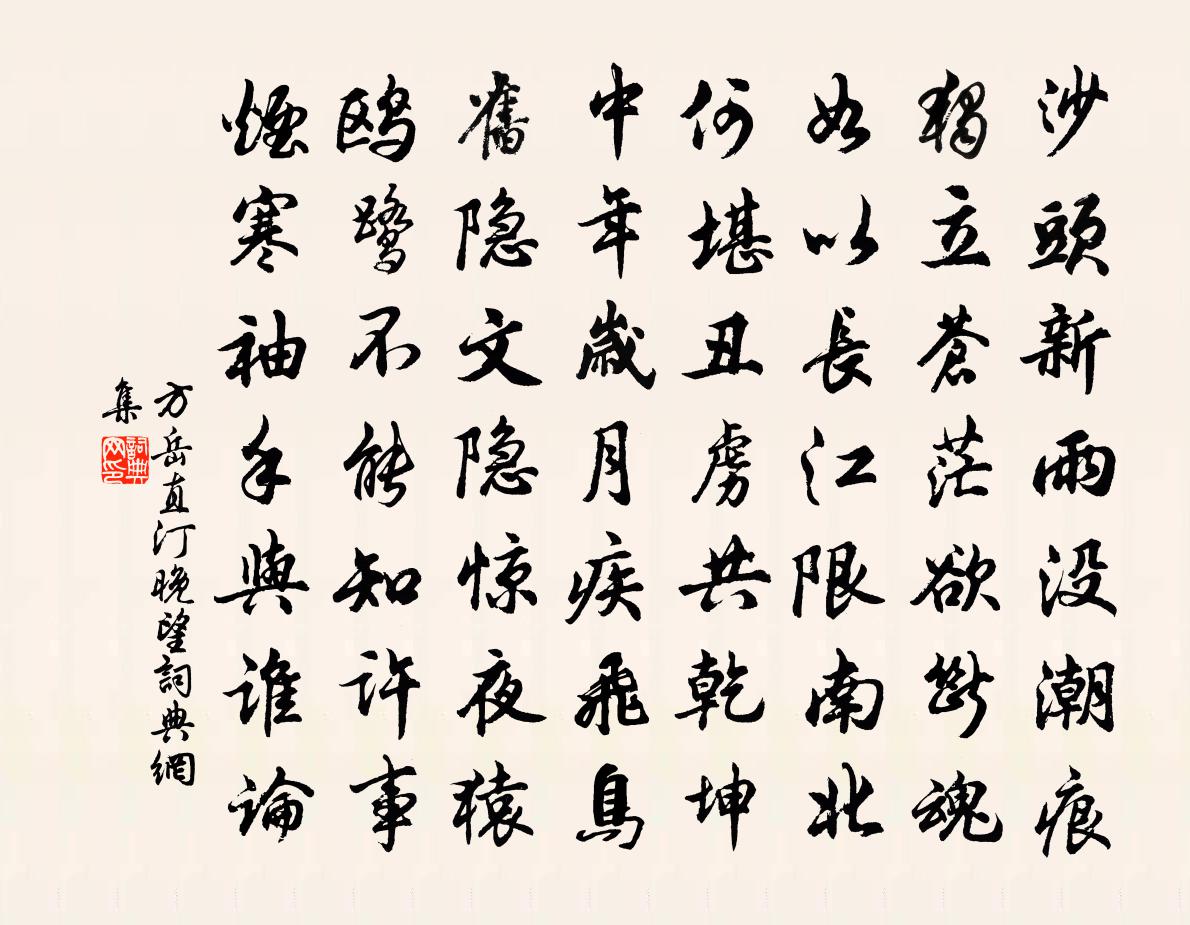 沙頭新雨没潮痕
獨立蒼茫欲斷魂
如以長江限南北
何堪丑虏共乾坤
中年歲月疾飛鳥
舊隐文隐惊夜猿
鸥鹭不能知许事
煙寒袖手與谁論
方岳直汀晚望詞典網
集
詞典網印